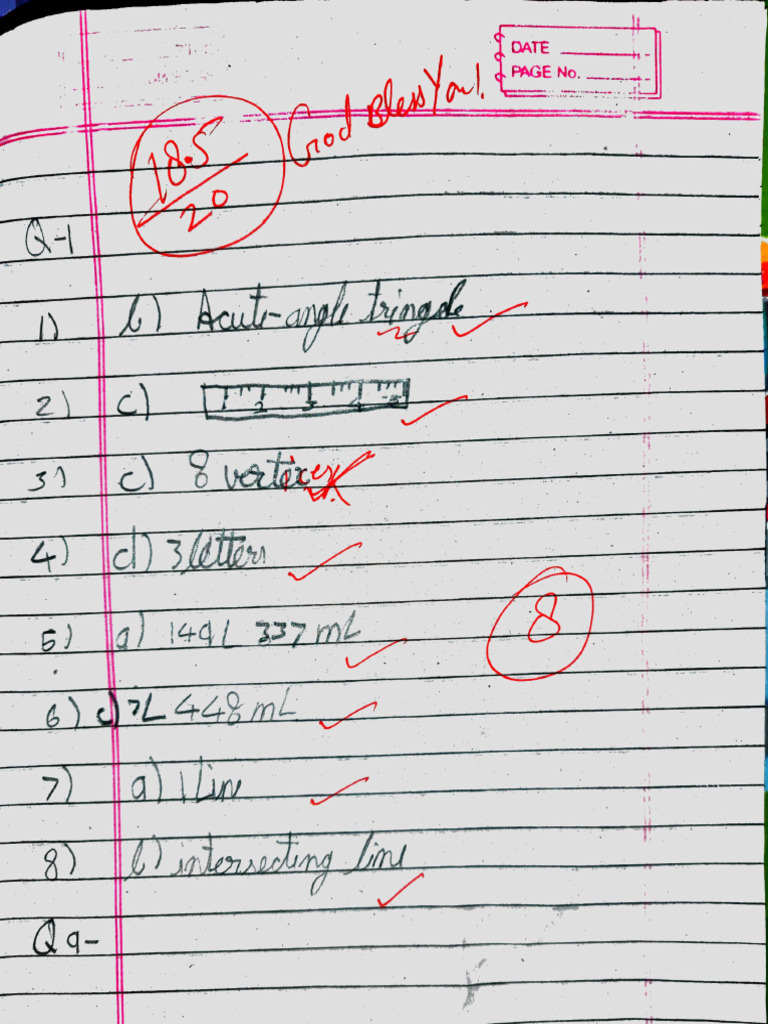 DATE
PAGE No.
God Bless You!
18.5/20
Q-1
1) b) Acute-angle tringle
2) c) 1 2 3 4 5
3) c) 8 vertices
4) d) 3 letters
5) a) 149L 337 mL
8
6) c) 7L 448 mL
7) a) 1 Line
8) b) intersecting line
Q 9-